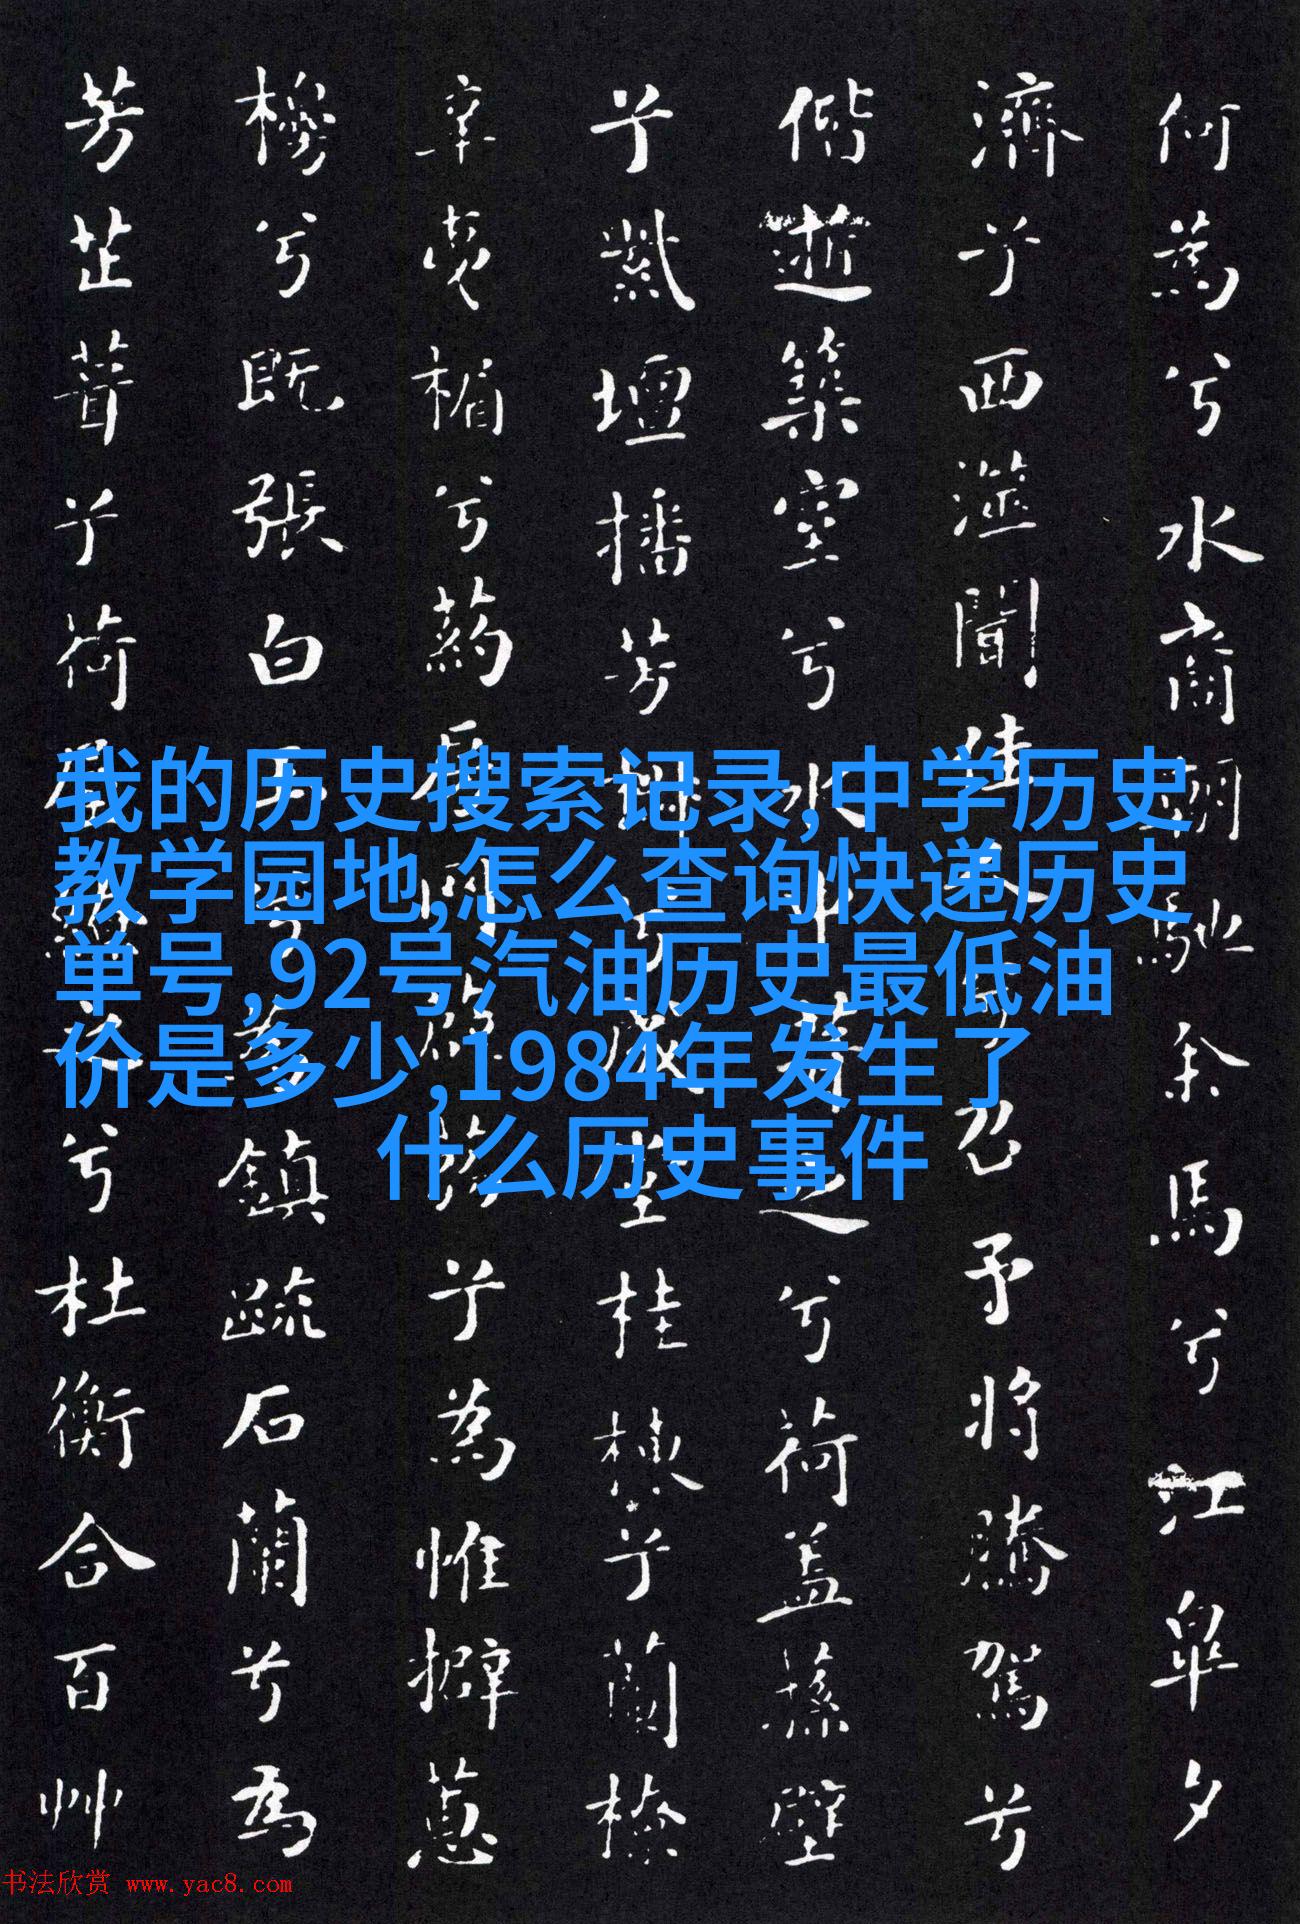 何為兮水裔朝馳余馬兮江皋夕
濟兮西澨聞佳人兮召予將騰駕兮
偕逝築室兮水中葺之兮荷蓋蓀壁
兮紫壇播芳椒兮成堂桂棟兮蘭橑
辛夷楣兮葯房罔薜荔兮為帷擗蕙
櫋兮既張白玉兮為鎮疏石蘭兮為
芳芷葺兮荷屋繚之兮杜衡合百艸
我的历史搜索记录,中学历史
教学园地,怎么查询快递历史
单号,92号汽油历史最低油
价是多少,1984年发生了
什么历史事件
书法欣赏 www.yac8.com